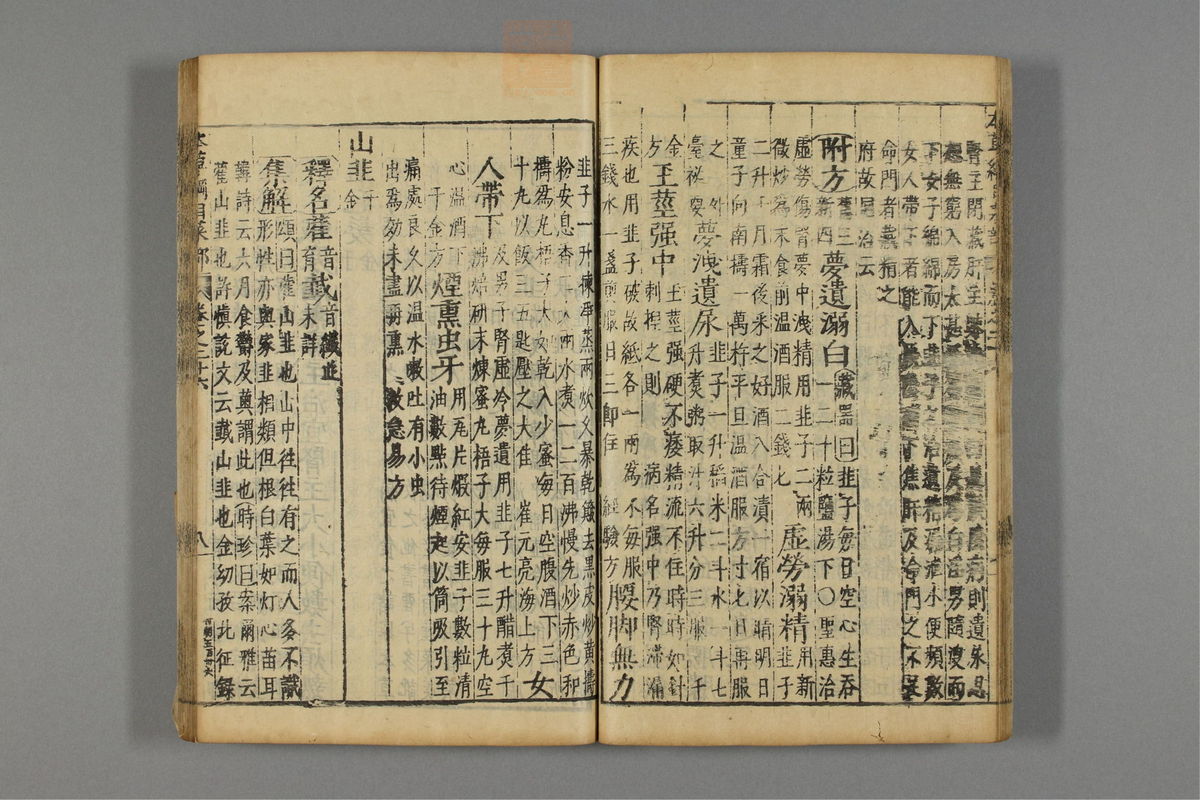 腎主閉藏肝主
下女子綿而下韭子之治遺精漏洩小便頻數
女人帶下者能入
命門者藏精之
府故同治云
附方舊三新四夢遺溺白藏器曰韭子每日空心生吞
一二十粒鹽湯下〇聖惠治
虛勞傷腎夢中洩精用韭子二兩
微炒為末食前溫酒服二錢匕虛勞溺精用新韭子
二升十月霜後采之好酒入合漬一宿以晴明日
童子向南擣一萬杵平旦溫酒服方寸匕日再服
之外臺祕要夢洩遺尿韭子一升稻米二斗水一斗七
升煮粥取汁六升分三服千
金方玉莖强中玉莖强硬不痿精流不住時時如針
刺捏之則病名强中乃腎滯漏
疾也用韭子破故紙各一兩為末每服
三錢水一盞煎服日三即住經驗方腰脚無力
韭子一升揀淨蒸兩炊久暴乾簸去黑皮炒黃擣
粉安息香二大兩水煮一二百沸慢火炒赤色和
擣為丸梧子大如乾入少蜜每日空腹酒下三
十丸以飯三五匙壓之大佳崔元亮海上方女
人帶下及男子腎虛冷夢遺用韭子七升醋煮千
沸焙研末煉蜜丸梧子大每服三十丸空
心溫酒下千金方煙熏虫牙用瓦片煆紅安韭子數粒清
油數點待煙起以筒吸引至
痛處良久以溫水嗽吐有小虫
出為効未盡再熏救急易方
山韭千金
釋名藿音育韱音纖並未詳
集解頌曰藿山韭也山中往往有之而人多不識
形性亦與家韭相類但根白葉如灯心苗耳
韓詩云六月食鬱及薁謂此也時珍曰案爾雅云
藿山韭也許慎說文云韱山韭也金幼孜北征錄
本草綱目菜部 卷之二十六 八